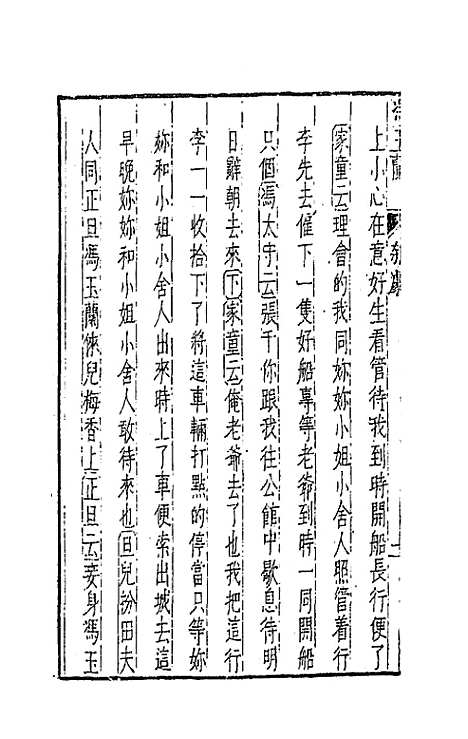 馮玉蘭 雜劇 十一
上小心在意好生看管待我到時開船長行便了
家童云理會的我同妳妳小姐小舍人照管着行
李先去僱下一隻好船專等老爺到時一同開船
只個馮太守云張千你跟我往公館中歇息待明
日辭朝去來下家童云俺老爺去了也我把這行
李一一收拾下了將這車輛打點的停當只等妳
妳和小姐小舍人出來時上了車便索出城去這
早晚妳妳和小姐小舍人敢待來也旦兒扮田夫
人同正旦馮玉蘭倈兒梅香上正旦云妾身馮玉